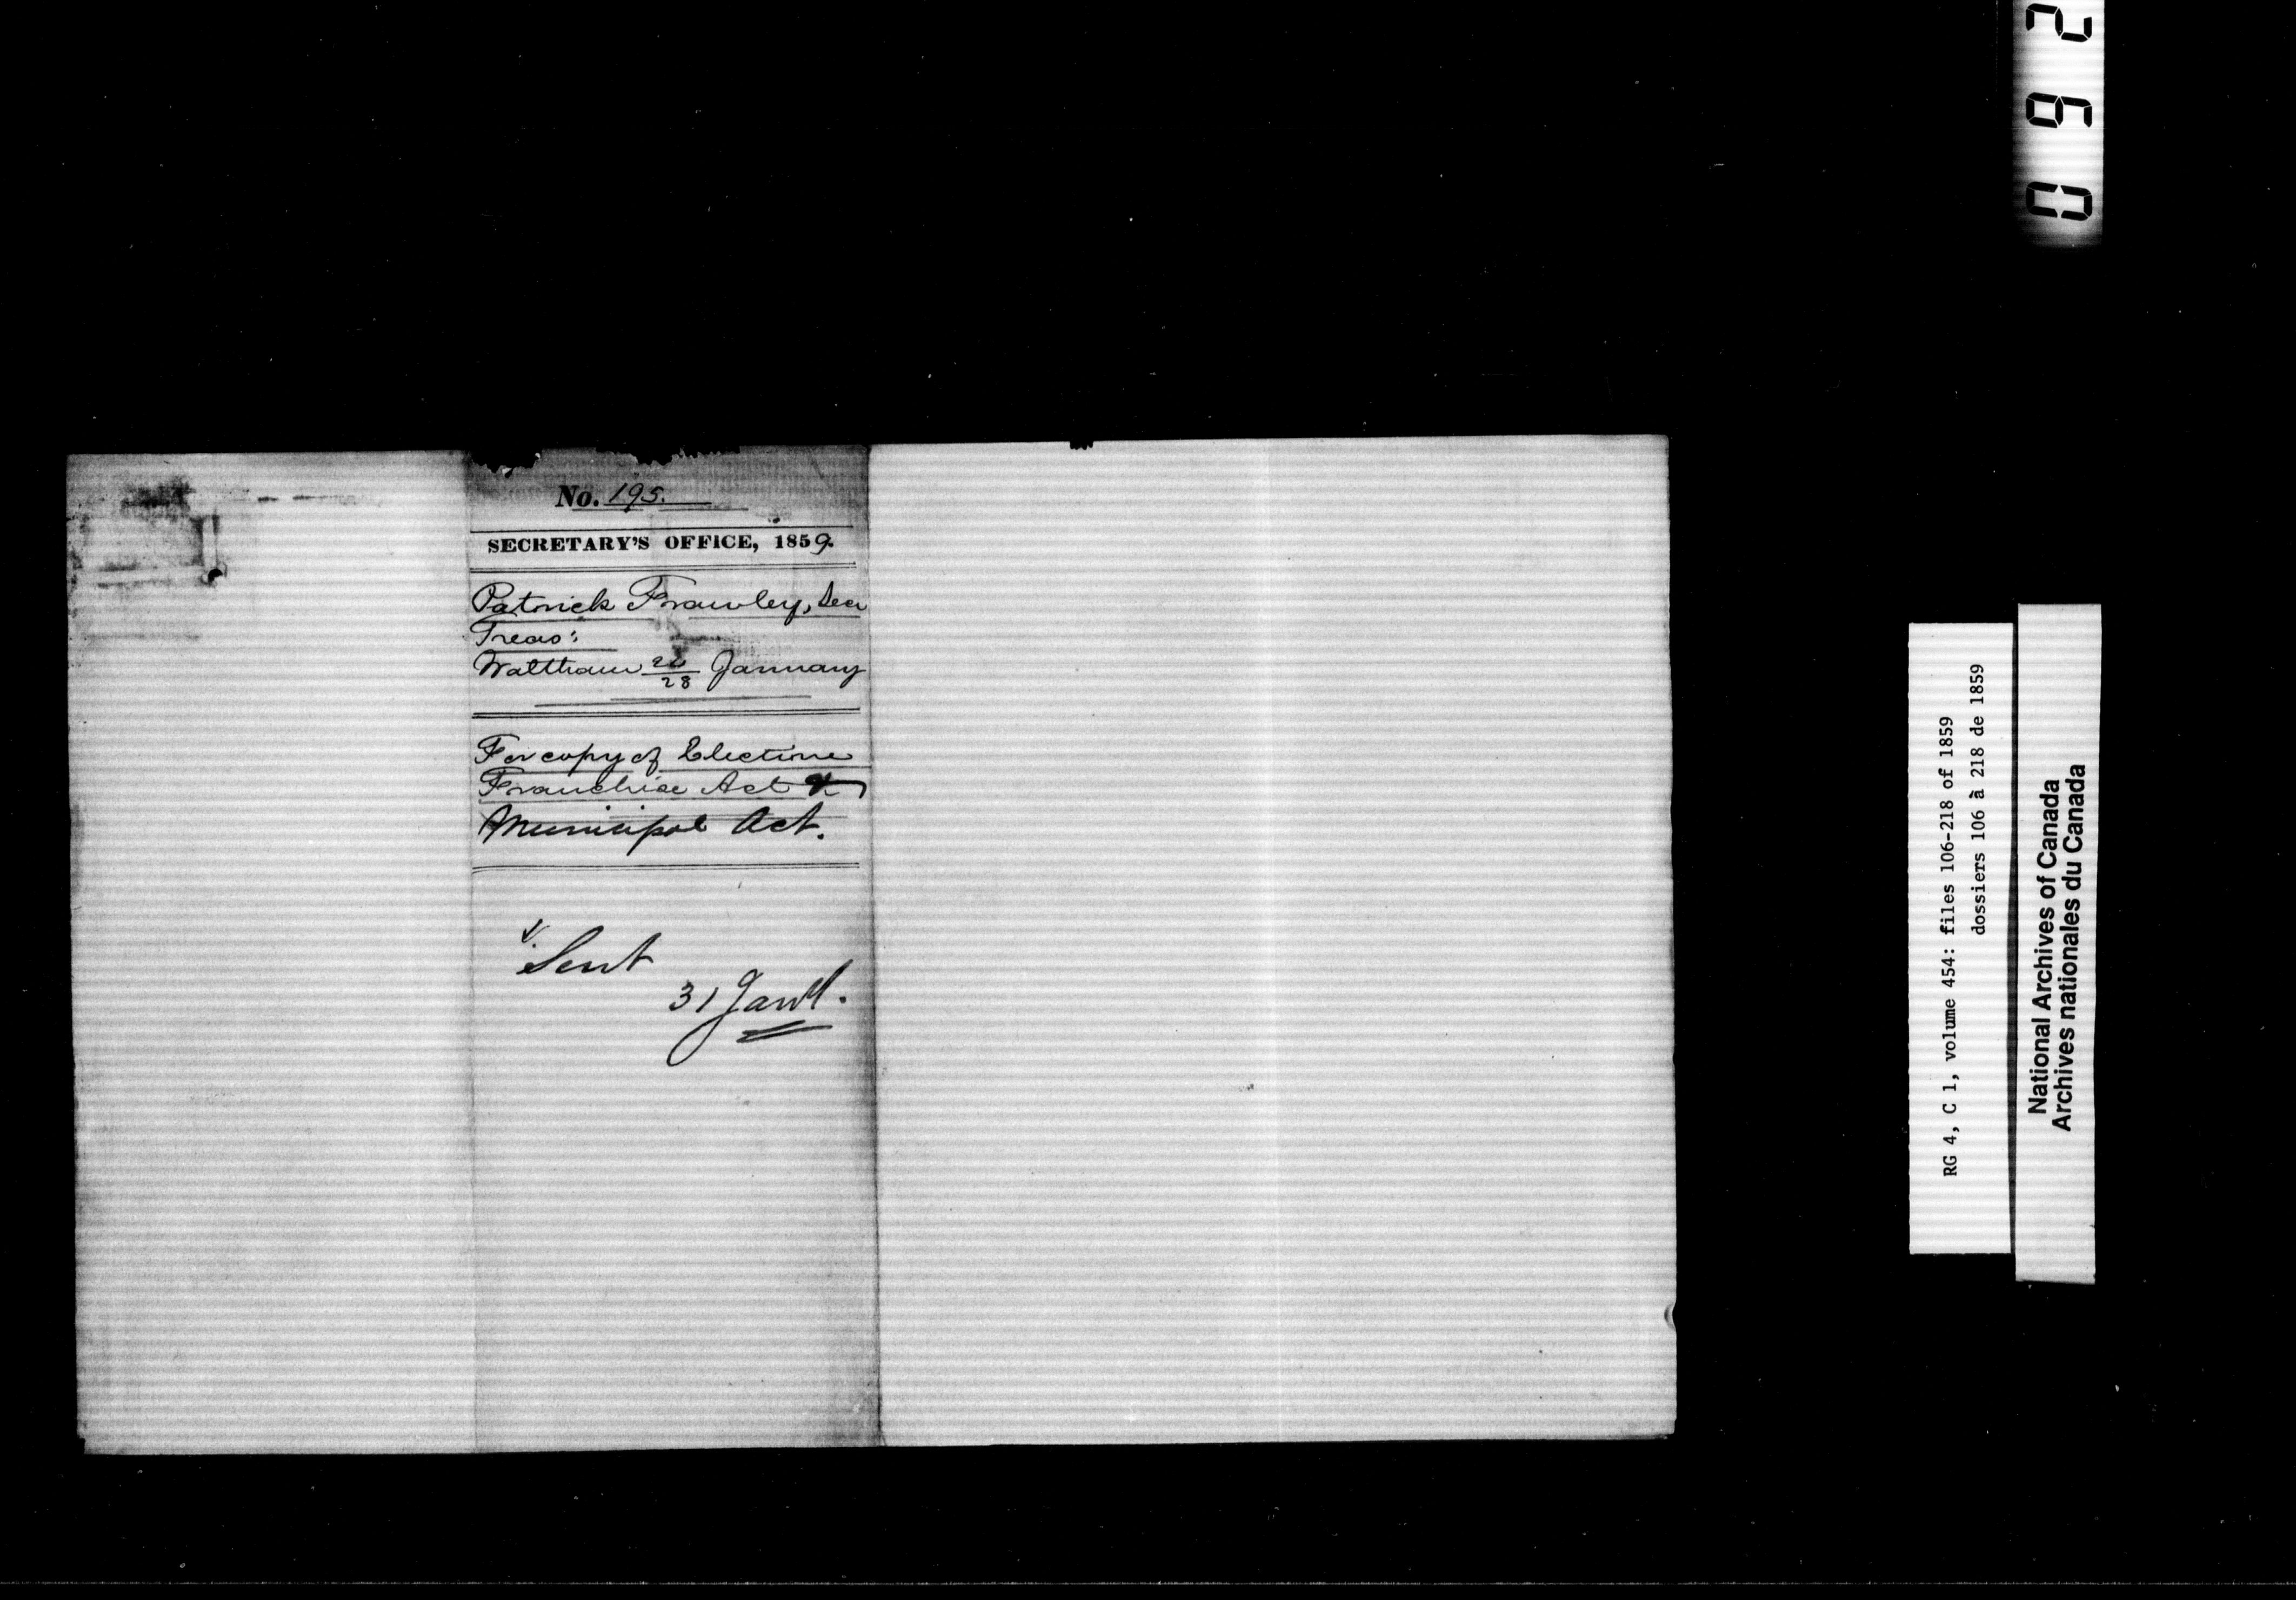 No. 195.
SECRETARY'S OFFICE, 1859.
Patrick Frawley, Sec
Treas:
Waltham 28 January
For copy of Elective
Franchise Act &
Municipal Act.
Sent
31 Jany.
092
RG 4, C 1, volume 454: files 106-218 of 1859
dossiers 106 à 218 de 1859
National Archives of Canada
Archives nationales du Canada